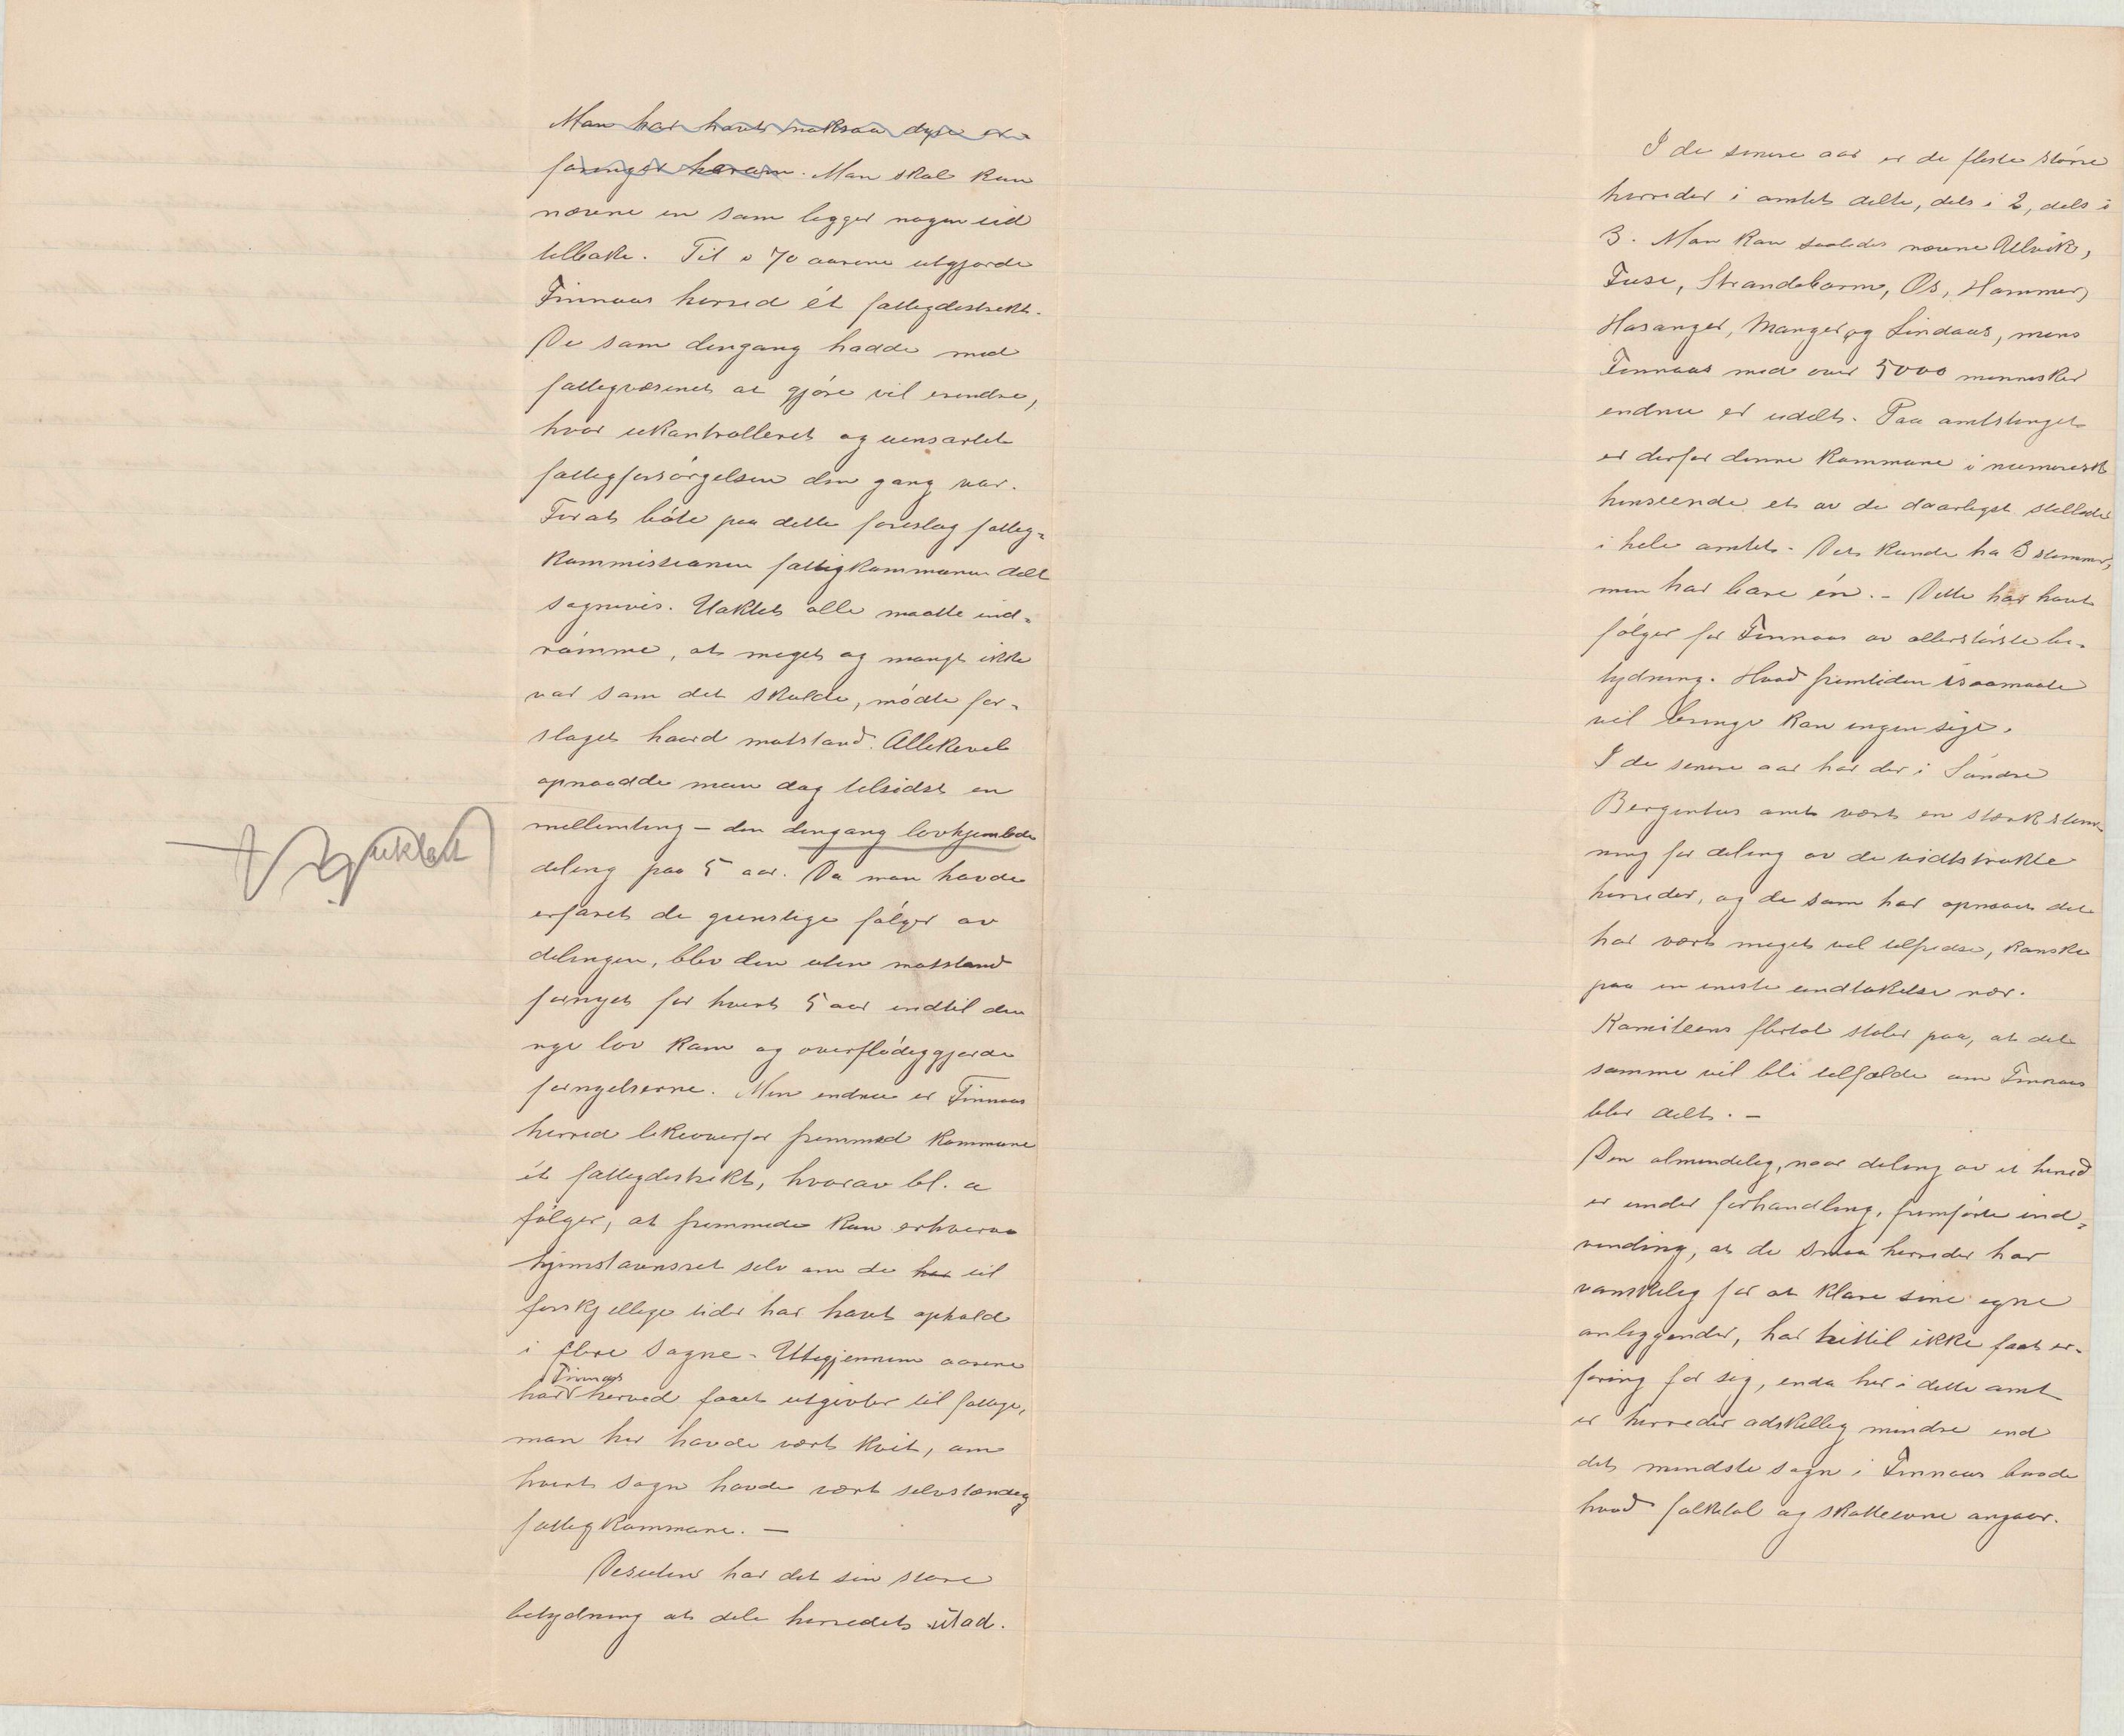 Man har havt noksaa dype er-
faringer herom. Man skal kun
nævne en som ligger nogen tid
tilbake. Til i 70 aarene utgjorde
Finnaas herred ét fattigdistrikt.
De som dengang hadde med
fattigvæsenet at gjøre vil erindre,
hvor ukontrolleret og uensartet
fattigforsørgelsen den gang var.
For at bøte paa dette foreslog fattig-
kommissionen fattigkommunen delt
sognevis. Uaktet alle maatte ind-
rømme, at meget og mangt ikke
var som det skulde, mødte for-
slaget haard motstand. Allikevel
opnaadde man dog tilsidst en
mellemting - den dengang lovhjemlede
deling paa 5 aar. Da man havde
erfaret de gunstige følger av
delingen, blev den uten motstand
fornyet for hvert 5 aar indtil den
nye lov kom og overflødiggjorde
fornyelserne. Men endnu er Finnaas
herred likeoverfor fremmed kommune
ét fattigdistrikt, hvorav bl. a
følger, at fremmede kan erhverve
hjemstavnsret selv om de har til
forskjellige tider har havt ophold
i flere sogne - Utigjennem aarene
har Finnaas herred faaet utgivter til fattige,
man her havde vært kvit, om
hvert sogn havde vært selvstændig
fattigkommune. -
Desuten har det sin store
betydning at dele herredet utad.
I de senere aar er de fleste større
herreder i amtet delte, dels i 2, dels i
3. Man kan saaledes nævne Ulvik,
Fuse, Strandebarm, Os, Hammer,
Hosanger, Manger og Lindaas, mens
Finnaas med over 5000 mennesker
endnu er udelt. Paa amtstinget
er derfor denne kommune i numerisk
henseende et av de daarligst stillede
i hele amtet. Det kunde ha 3 stemmer,
men har bare én. - Dette har havt
følger for Finnaas av allerstørste be-
tydning. Hvad fremtiden isaamaate
vil bringe kan ingen sige.
I de senere aar har der i Søndre
Bergenhus amt vært en stærk stem-
ning for deling av de vidtstrakte
herreder, og de som har opnaaet det
har vært meget vel tilfredse, kanske
paa en eneste undtakelse nær.
Komiteens flertal stoler paa, at det
samme vil bli tilfælde om Finnaas
blir delt. -
Den almindelig, naar deling av et herred
er under forhandling, fremførte ind-
vending, at de smaa herreder har
vanskelig for at klare sine egne
anliggender, har hittil ikke faat er-
faring for sig, enda her i dette amt
er herreder adskillig mindre end
det mindste sogn i Finnaas baade
hvad folketal og skatteevne angaar.